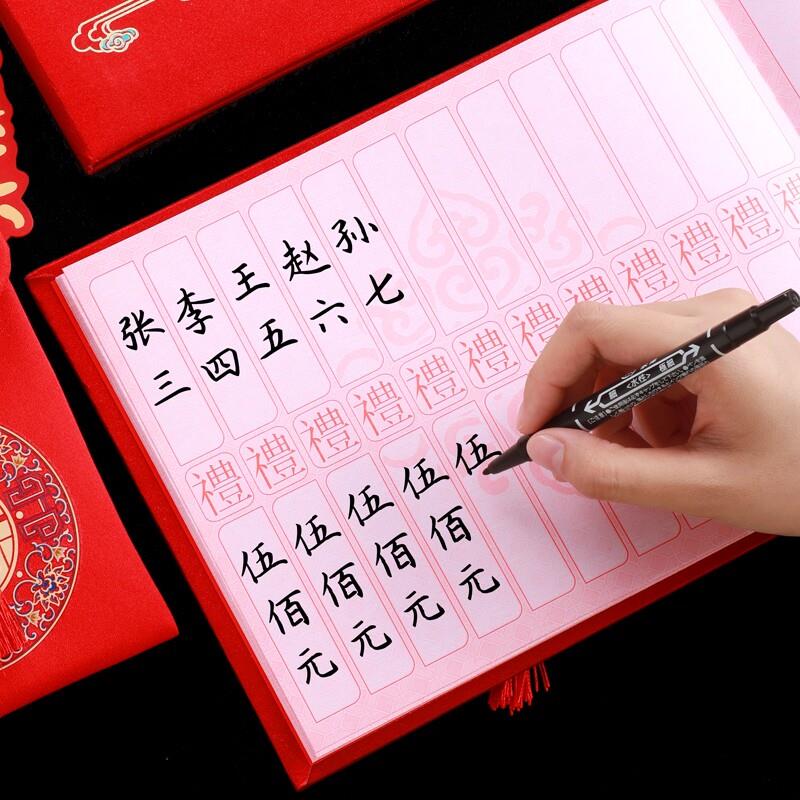 张三
李四
王五
赵六
孙七
禮禮禮禮禮禮禮禮禮禮禮
伍佰元
伍佰元
伍佰元
伍佰元
伍